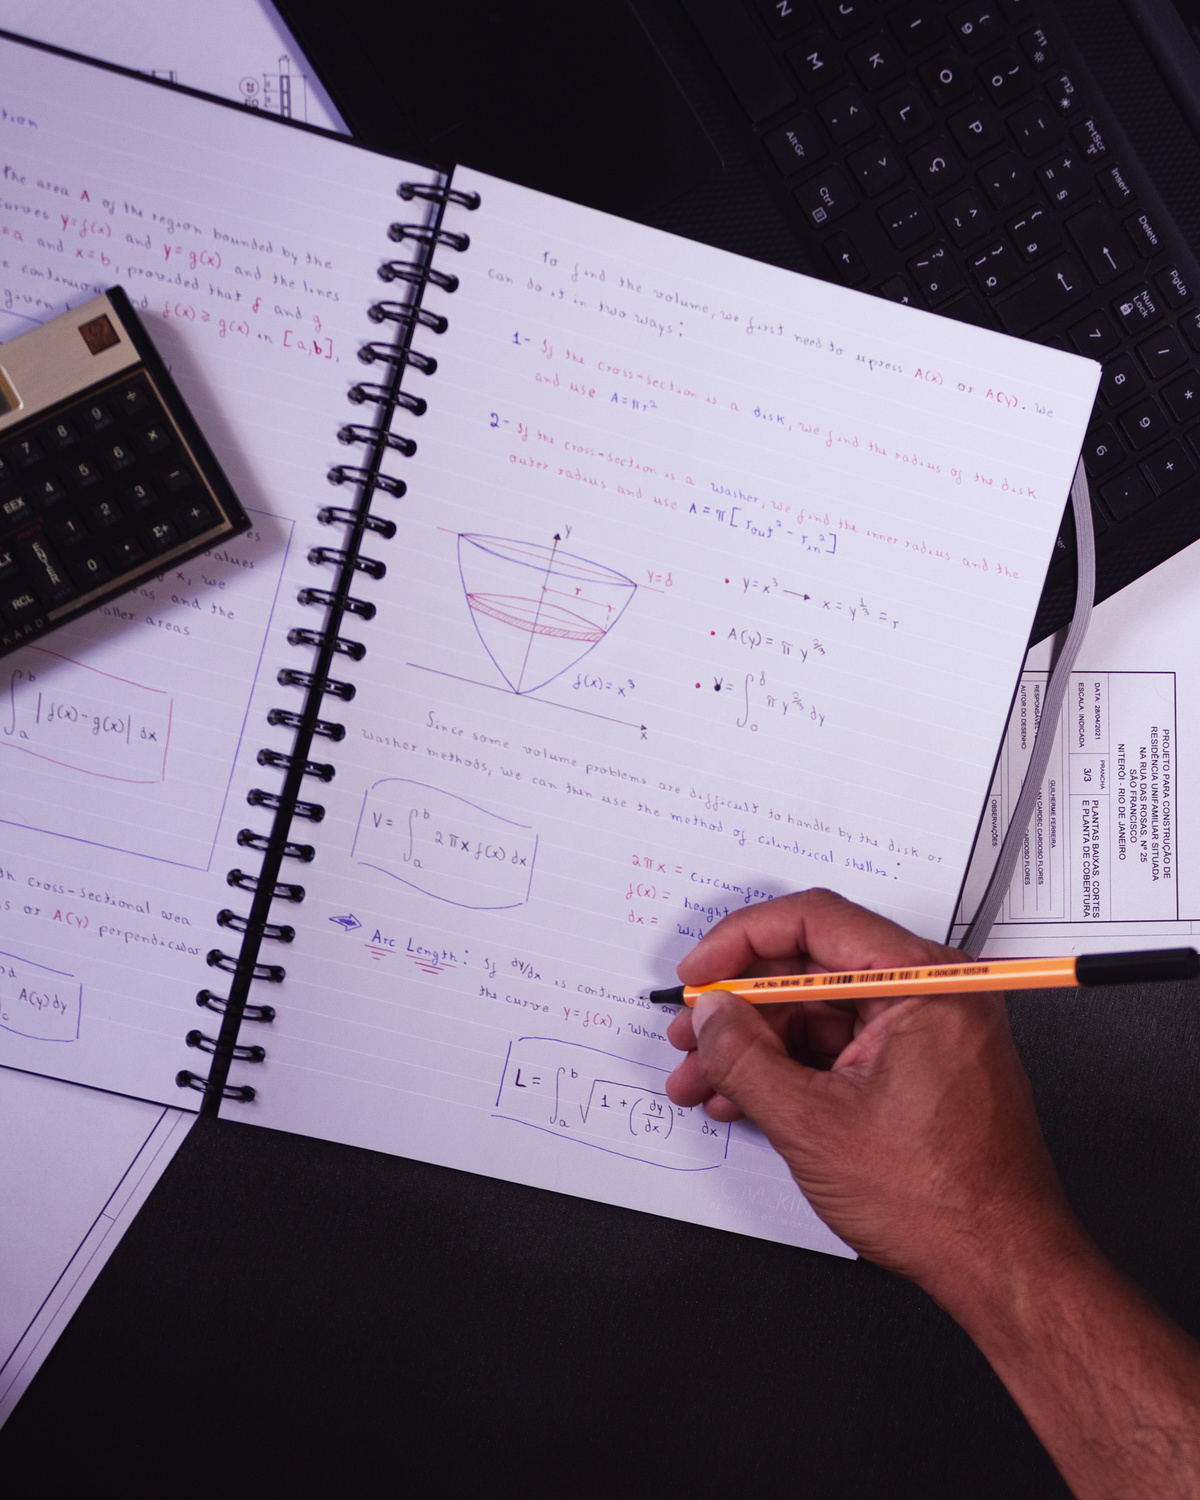 tion
the area A of the region bounded by the
curves y=f(x) and y=g(x) and the lines
=a and x=b, provided that f and g
continuous and f(x) ≥ g(x) in [a,b],
given
values
x, we
and the
smaller areas
∫ₐᵇ |f(x)-g(x)| dx
cross-sectional area
or A(y) perpendicular
A(y)dy
To find the volume, we first need to express A(x) or A(y). We
can do it in two ways:
1- If the cross-section is a disk, we find the radius of the disk
and use A=πr²
2- If the cross-section is a washer, we find the inner radius and the
outer radius and use A=π[r_out² - r_in²]
y
y=8
r
f(x)=x³
x
• y=x³ → x=y^(1/3) = r
• A(y) = π y^(2/3)
• V= ∫₀⁸ π y^(2/3) dy
Since some volume problems are difficult to handle by the disk or
washer methods, we can then use the method of cilindrical shells:
V= ∫ₐᵇ 2πx f(x) dx
2πx = circumfere
f(x) = height
dx = wid
Arc Length: If dy/dx is continuous on
the curve y=f(x), when
L= ∫ₐᵇ √(1 + (dy/dx)²) dx
Art No. 88/46
7 8 9 ÷
4 5 6 ×
EEX 1 2 3 −
RCL 0 • Σ+ +
N J I 9 (
M K O 0 ) F11
< L P - F12
AltGr > Ç PrtScr
Ctrl Insert
Delete
PgUp
Num Lock
7 8 9
6
PROJETO PARA CONSTRUÇÃO DE
RESIDÊNCIA UNIFAMILIAR SITUADA
NA RUA DAS ROSAS, Nº 25
SÃO FRANCISCO
NITERÓI - RIO DE JANEIRO
DATA: 28/04/2021
ESCALA: INDICADA
PRANCHA
3/3
PLANTAS BAIXAS, CORTES
E PLANTA DE COBERTURA
GUILHERME FERREIRA
CARDEC CARDOSO FLORES
CARDOSO FLORES
AUTOR DO DESENHO
OBSERVAÇÕES: